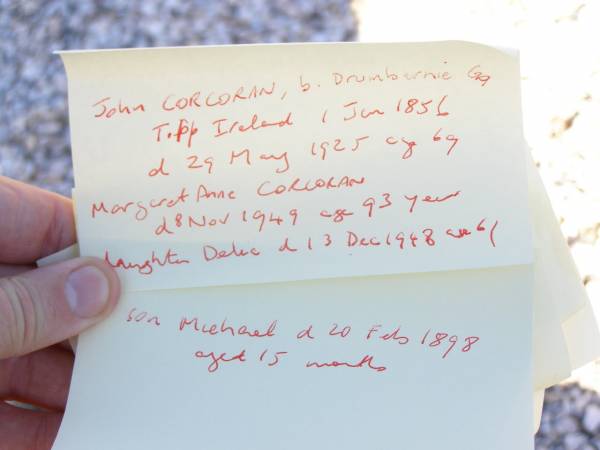 John CORCORAN, b. Drumbernie Co
Tipp Ireland 1 Jan 1856
d 29 May 1925 age 69
Margaret Anne CORCORAN
d 8 Nov 1949 age 93 year
daughter Delia d 13 Dec 1948 age 61
son Michael d 20 Feb 1898
aged 15 months